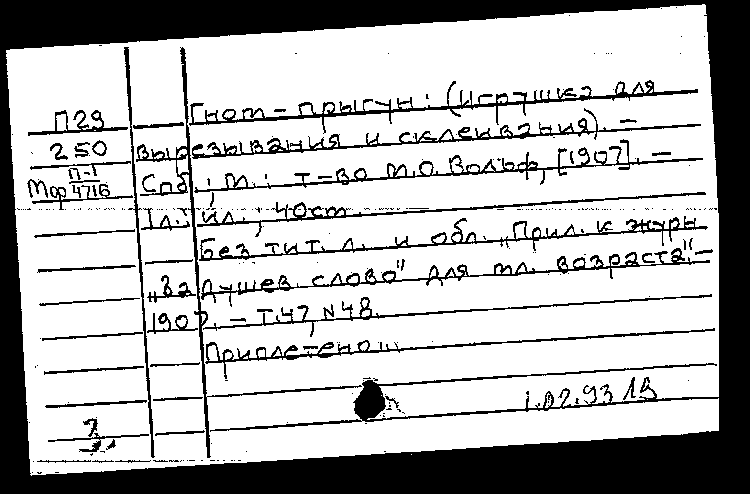 П29
250
П-1
Мор 4716
Гном-прыгун: (Игрушка для
вырезывания и склеивания). —
Спб.; М.: Т-во М.О. Вольф, [1907]. —
1л.: ил.; 40см.
Без тит. л. и обл. „Прил. к журн
„Задушев. слово" для мл. возраста". —
1907. — Т.47, N48.
Приплетено...
1.02.93